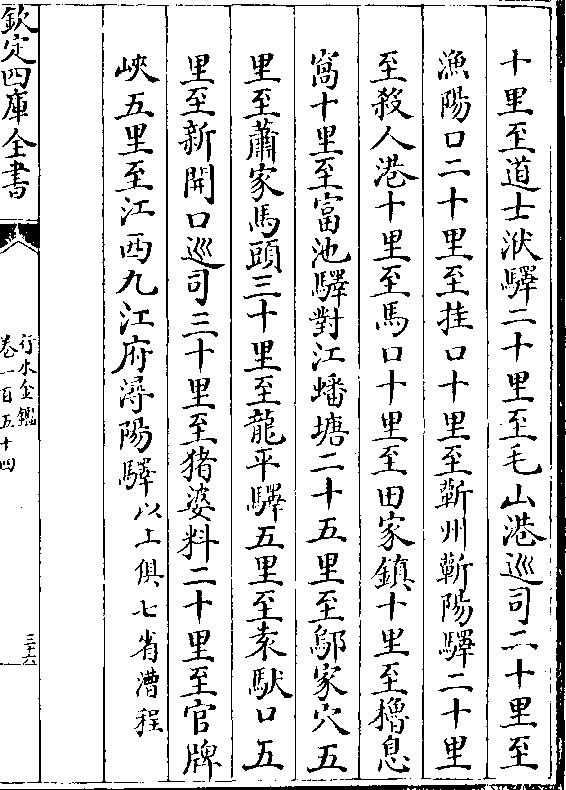 十里至道士洑驛二十里至毛山港巡司二十里至
漁陽口二十里至挂口十里至蘄州蘄陽驛二十里
至殺人港十里至馬口十里至田家鎮十里至櫓息
窩十里至富池驛對江蟠塘二十五里至鄔家穴五
里至蕭家馬頭三十里至龍平驛五里至袁馱口五
里至新開口巡司三十里至猪婆料二十里至官牌
峽五里至江西九江府潯陽驛以上俱七省漕程
欽定四庫全書
行水金鑑
卷一百五十四
三十六